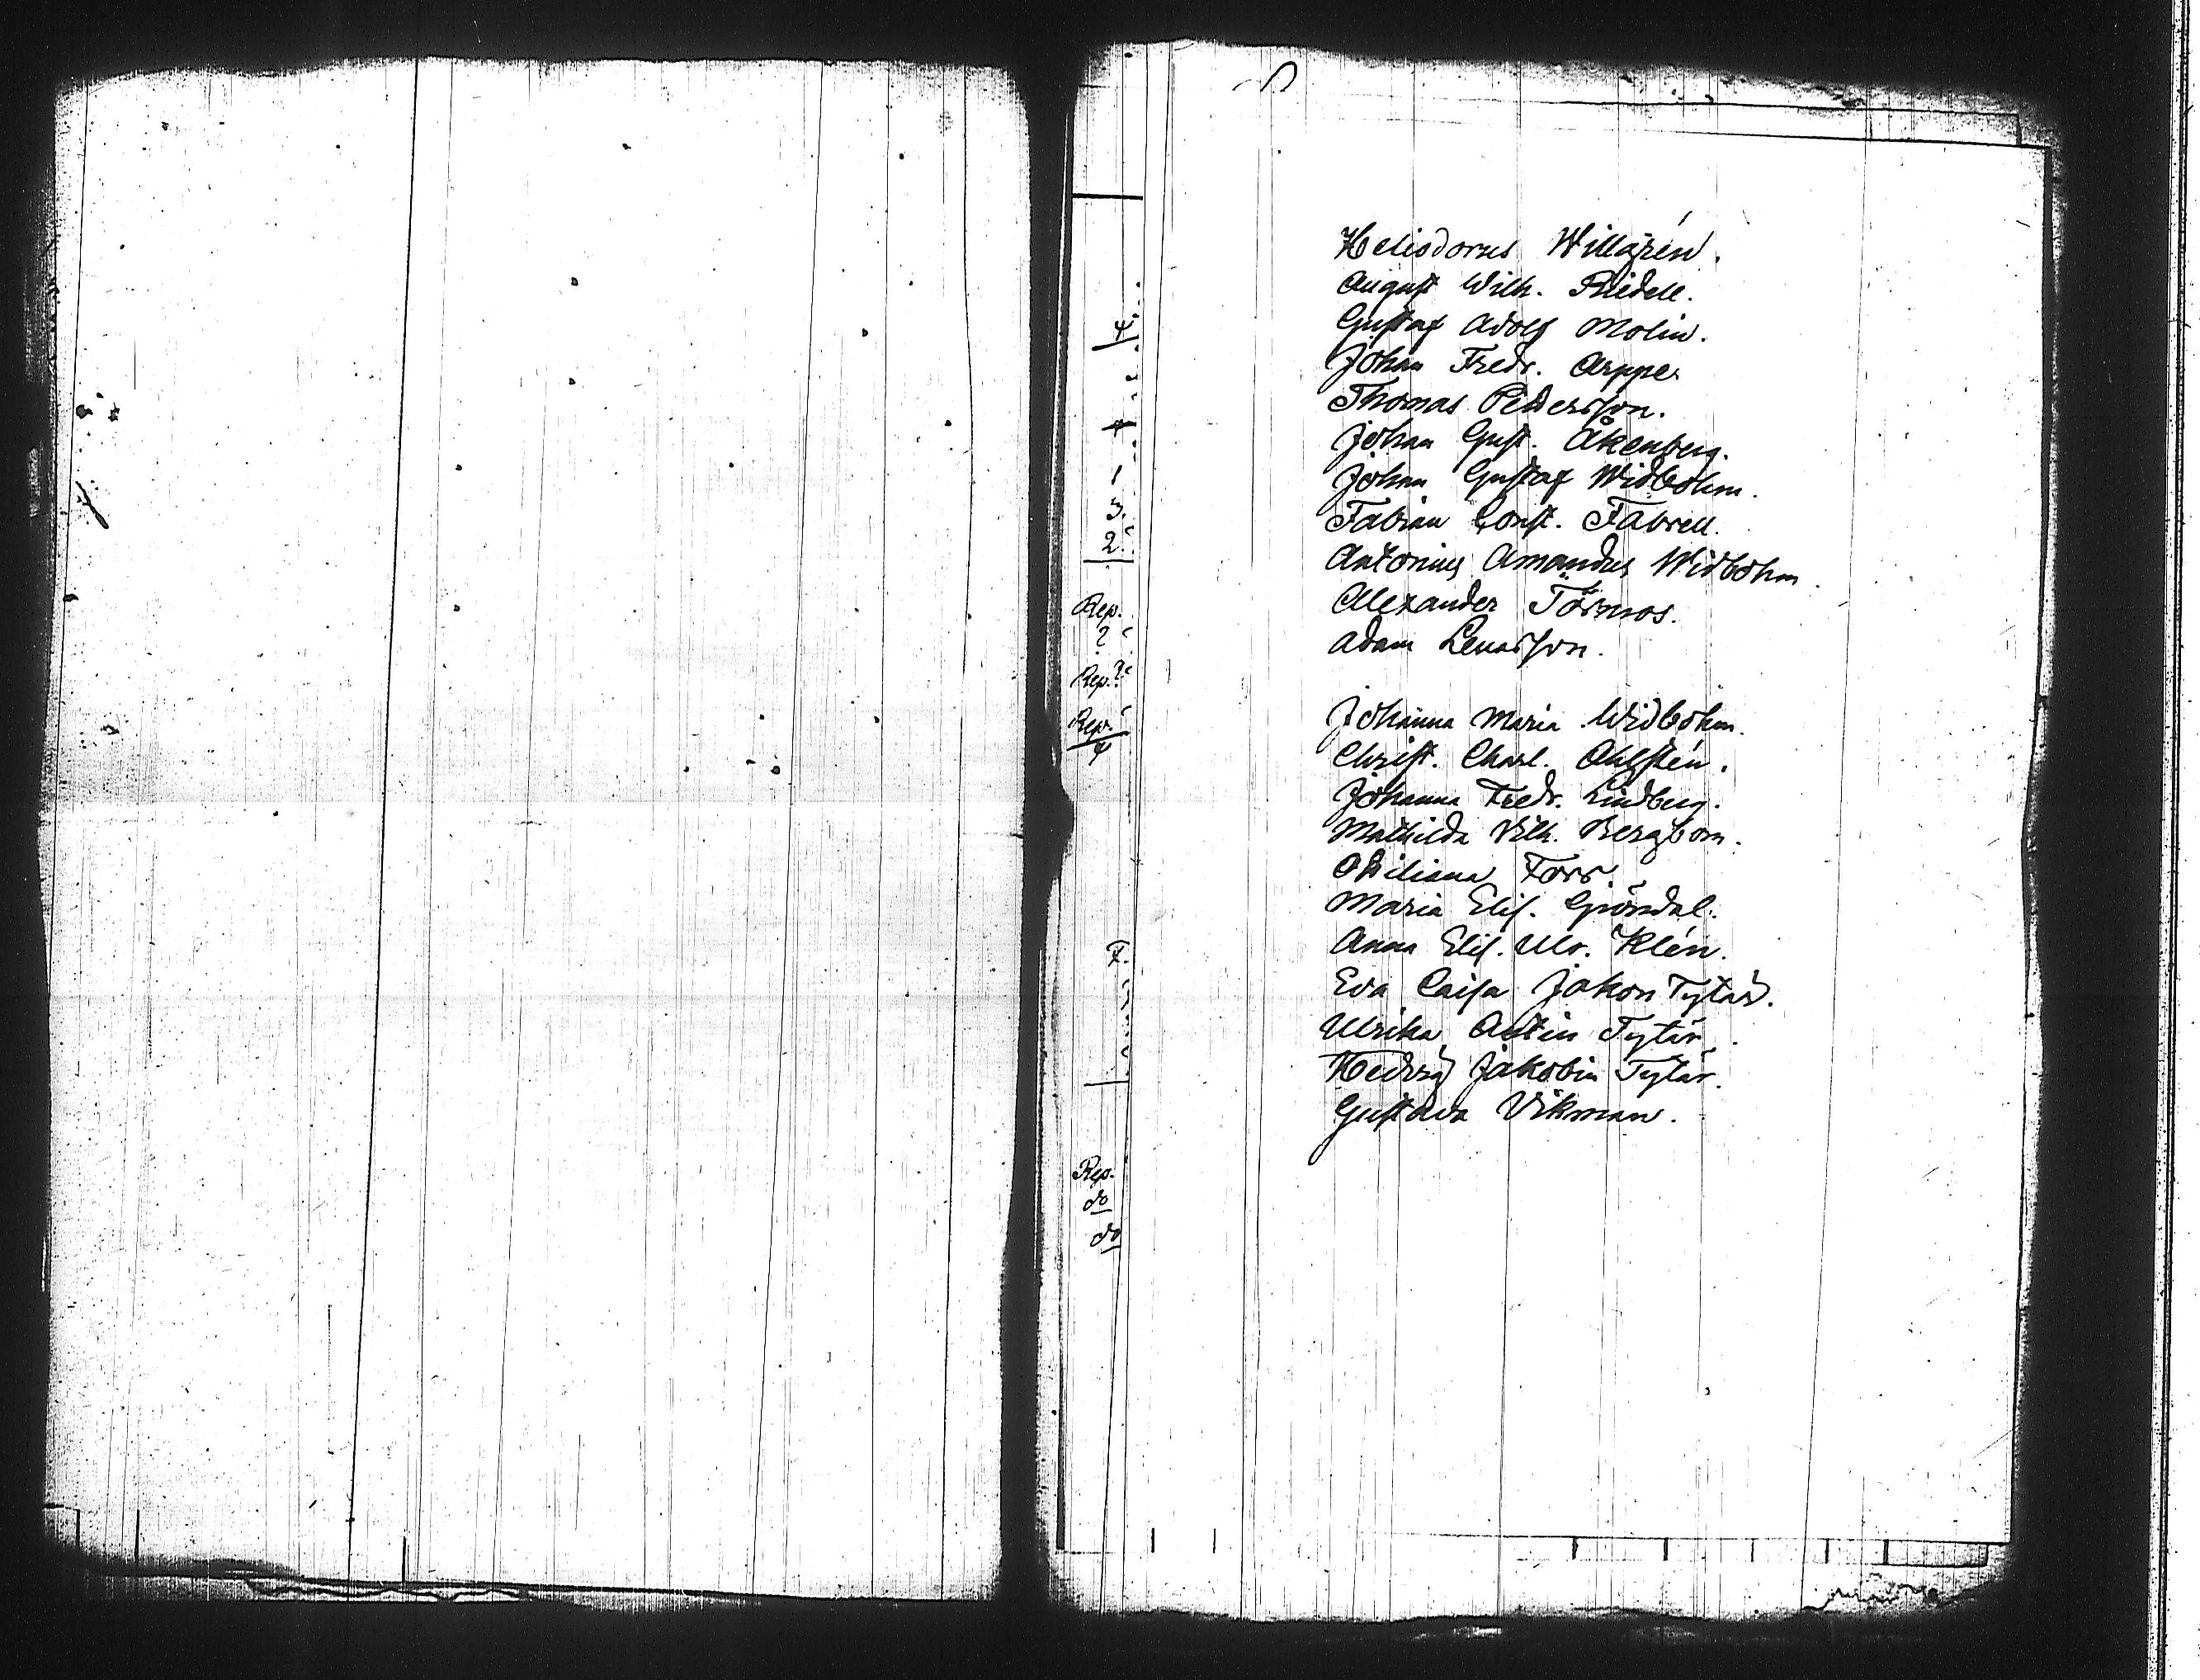 Heliodorus Willgrén.
August Wilh. Riedell.
Gustaf Adolf Molin.
Johan Fredr. Arppe.
Thomas Pettersson.
Johan Gust. Åkenberg.
Johan Gustaf Widbohm.
Fabian Const. Fabrell.
Antonius Amandus Widbohm.
Alexander Törnros.
Adam Lenarsson.
Johanna Maria Widbohm.
Christ. Charl. Ahlstén.
Johanna Fredr. Lindberg.
Mathilda Vilh. Bergbom.
Ottiliana Forr
Maria Elis. Gröndal.
Anna Elis. Ulr. Klén.
Eva Caisa Jakon Tytär.
Ulrika Antin Tytär.
Hedvig Jakobin Tytär.
Gustava Vikman.
3.
2.
Rep.
?
Rep.?
Rep.
Rep.
do
do